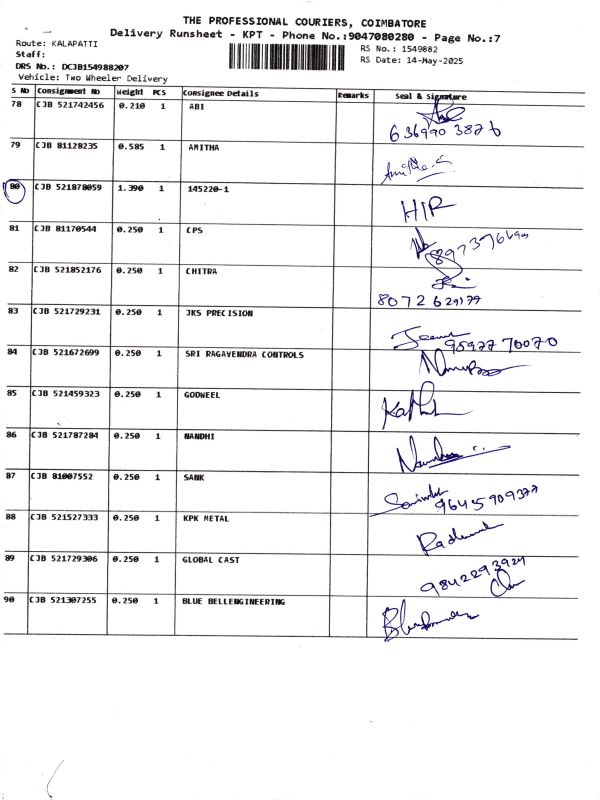 THE PROFESSIONAL COURIERS, COIMBATORE
Delivery Runsheet - KPT - Phone No.:9047080280 - Page No.:7
Route: KALAPATTI
RS No.: 1549882
Staff:
RS Date: 14-May-2025
DRS No.: DCJB154988207
Vehicle: Two Wheeler Delivery
S No Consignment No Weight PCS Consignee Details Remarks Seal & Signature
78 CJB 521742456 0.210 1 ABI
636990 3876
79 CJB 81128235 0.585 1 AMITHA
Amitha
80 CJB 521878059 1.390 1 145220-1
HIR
81 CJB 81170544 0.250 1 CPS
82 CJB 521852176 0.250 1 CHITRA
8072629179
83 CJB 521729231 0.250 1 JKS PRECISION
95977 70070
84 CJB 521672699 0.250 1 SRI RAGAVENDRA CONTROLS
85 CJB 521459323 0.250 1 GODWEEL
86 CJB 521787284 0.250 1 NANDHI
87 CJB 81007552 0.250 1 SANK
96455 909377
88 CJB 521527333 0.250 1 KPK METAL
89 CJB 521729306 0.250 1 GLOBAL CAST
9842293929
90 CJB 521307255 0.250 1 BLUE BELLENGINEERING